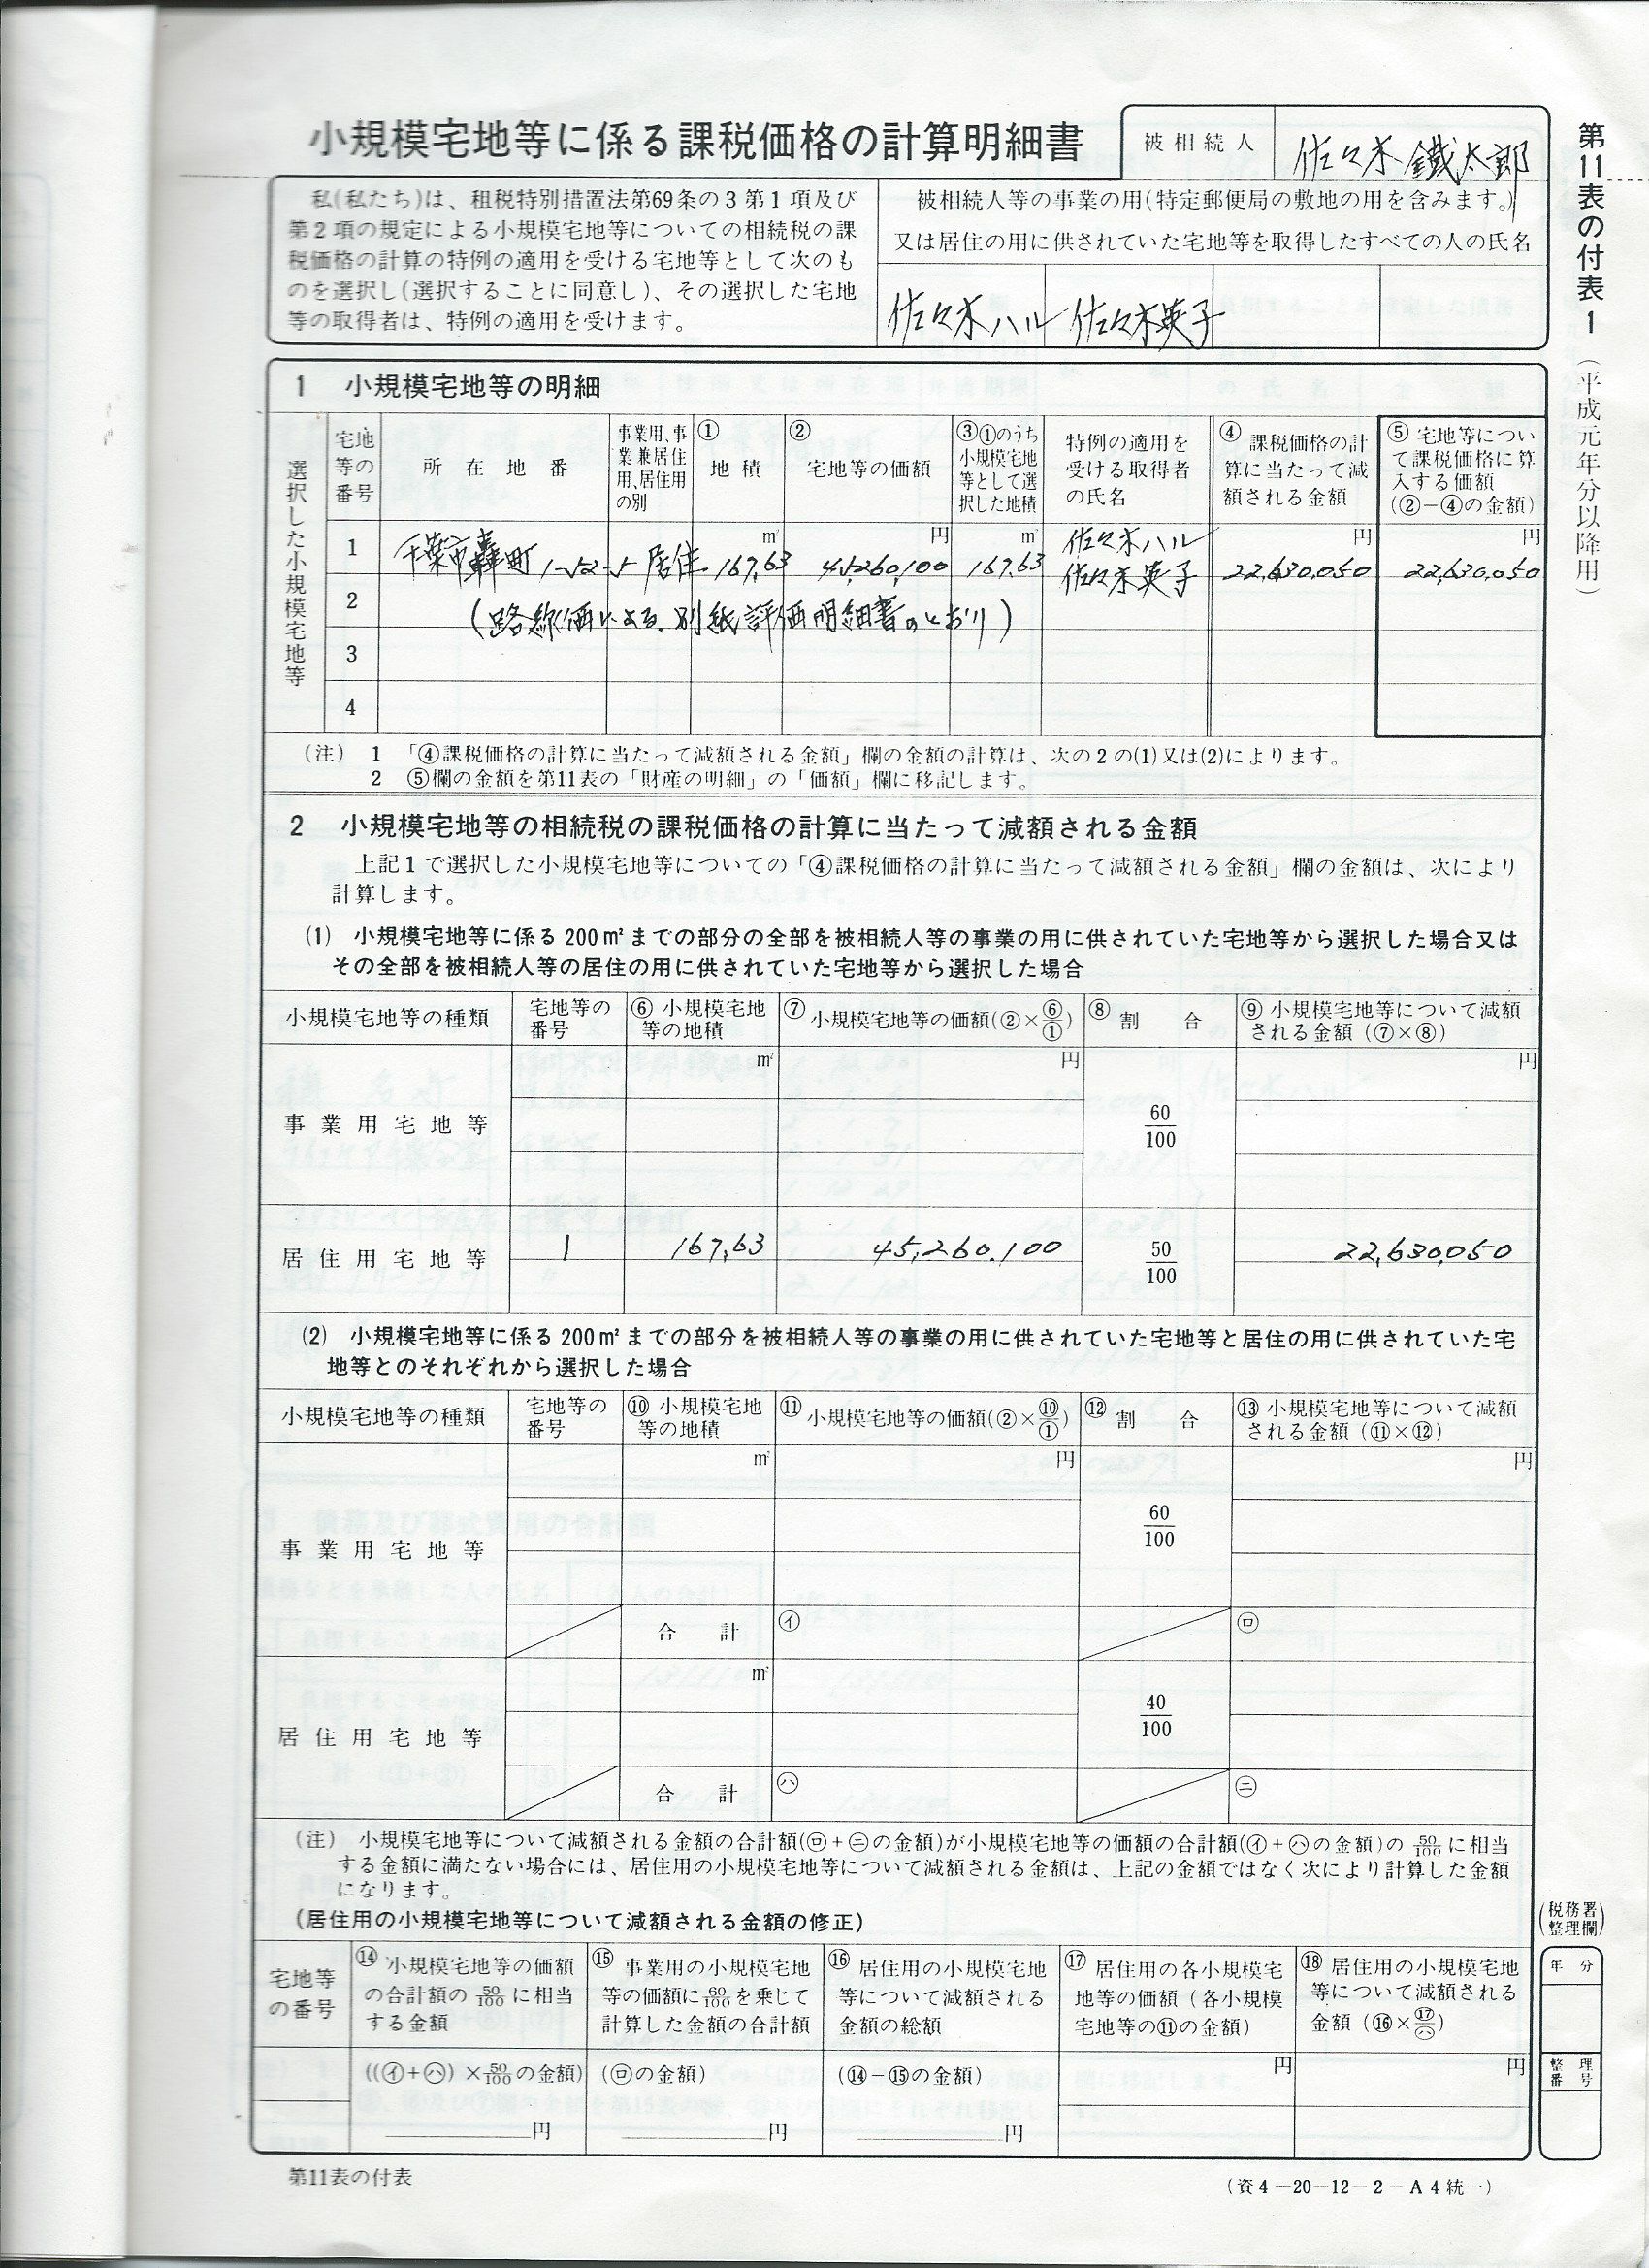 小規模宅地等に係る課税価格の計算明細書
被相続人
佐々木鐵太郎
第11表の付表1(平成元年分以降用)
私(私たち)は、租税特別措置法第69条の3第1項及び
第2項の規定による小規模宅地等についての相続税の課
税価格の計算の特例の適用を受ける宅地等として次のも
のを選択し(選択することに同意し)、その選択した宅地
等の取得者は、特例の適用を受けます。
被相続人等の事業の用(特定郵便局の敷地の用を含みます。)
又は居住の用に供されていた宅地等を取得したすべての人の氏名
佐々木ハル 佐々木英子
1 小規模宅地等の明細
選択した小規模宅地等
宅地等の番号
所在地番
事業用、事業兼居住用、居住用の別
①地積
②宅地等の価額
③①のうち小規模宅地等として選択した地積
特例の適用を受ける取得者の氏名
④課税価格の計算に当たって減額される金額
⑤宅地等について課税価格に算入する価額(②-④の金額)
1 千葉市轟町1-52-5 居住 167.63㎡ 45,260,100円 167.63㎡ 佐々木ハル 佐々木英子 22,630,050円 22,630,050円
2 (路線価による、別紙評価明細書のとおり)
3
4
(注) 1 「④課税価格の計算に当たって減額される金額」欄の金額の計算は、次の2の(1)又は(2)によります。
2 ⑤欄の金額を第11表の「財産の明細」の「価額」欄に移記します。
2 小規模宅地等の相続税の課税価格の計算に当たって減額される金額
上記1で選択した小規模宅地等についての「④課税価格の計算に当たって減額される金額」欄の金額は、次により
計算します。
(1) 小規模宅地等に係る200㎡までの部分の全部を被相続人等の事業の用に供されていた宅地等から選択した場合又は
その全部を被相続人等の居住の用に供されていた宅地等から選択した場合
小規模宅地等の種類 宅地等の番号 ⑥小規模宅地等の地積 ⑦小規模宅地等の価額(②×⑥/①) ⑧割合 ⑨小規模宅地等について減額される金額(⑦×⑧)
㎡ 円 円
事業用宅地等 60/100
居住用宅地等 1 167.63 45,260,100 50/100 22,630,050
(2) 小規模宅地等に係る200㎡までの部分を被相続人等の事業の用に供されていた宅地等と居住の用に供されていた宅
地等とのそれぞれから選択した場合
小規模宅地等の種類 宅地等の番号 ⑩小規模宅地等の地積 ⑪小規模宅地等の価額(②×⑩/①) ⑫割合 ⑬小規模宅地等について減額される金額(⑪×⑫)
㎡ 円 円
事業用宅地等 60/100
合計 ㋑ ㋺
㎡
居住用宅地等 40/100
合計 ㋩ ㋥
(注) 小規模宅地等について減額される金額の合計額(㋺+㋥の金額)が小規模宅地等の価額の合計額(㋑+㋩の金額)の50/100に相当
する金額に満たない場合には、居住用の小規模宅地等について減額される金額は、上記の金額ではなく次により計算した金額
になります。
(居住用の小規模宅地等について減額される金額の修正)
宅地等の番号
⑭小規模宅地等の価額の合計額の50/100に相当する金額
⑮事業用の小規模宅地等の価額に60/100を乗じて計算した金額の合計額
⑯居住用の小規模宅地等について減額される金額の総額
⑰居住用の各小規模宅地等の価額(各小規模宅地等の⑪の金額)
⑱居住用の小規模宅地等について減額される金額(⑯×⑰/㋩)
((㋑+㋩)×50/100の金額) (㋺の金額) (⑭-⑮の金額) 円 円
円 円 円
(税務署整理欄)
年分
整理番号
第11表の付表
(資4-20-12-2-A4統一)